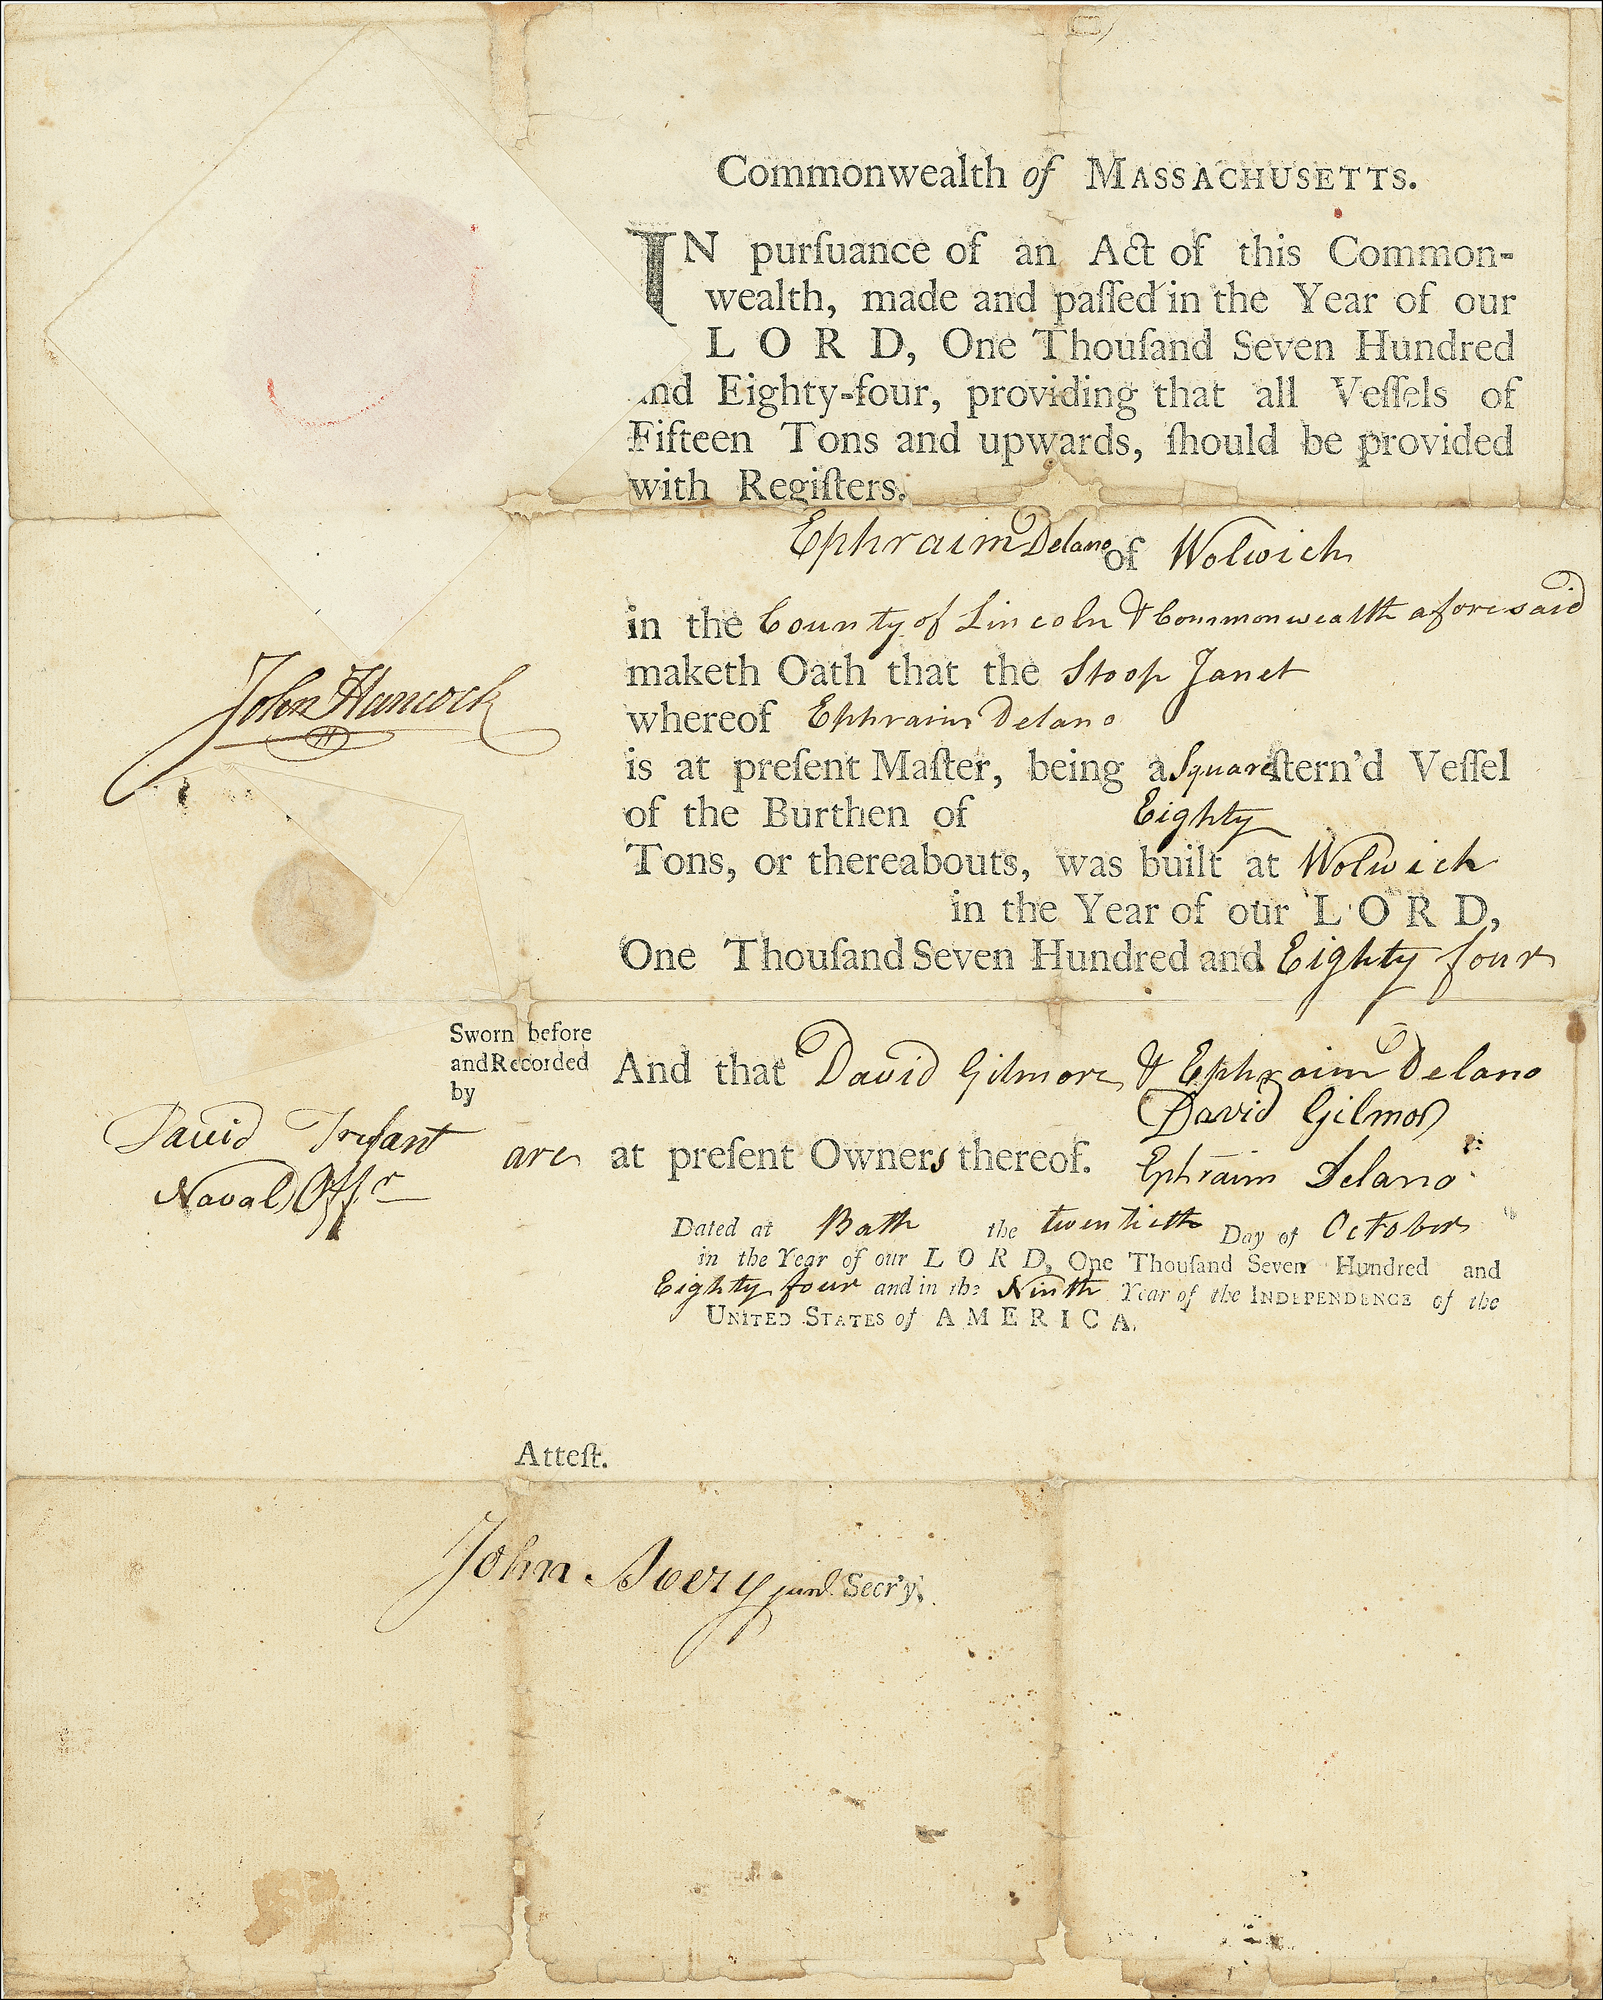 Commonwealth of MASSACHUSETTS.
IN purſuance of an Act of this Common-
wealth, made and paſſed in the Year of our
LORD, One Thouſand Seven Hundred
and Eighty-four, providing that all Veſſels of
Fifteen Tons and upwards, ſhould be provided
with Regiſters.
Ephraim Delano of Wolwich
in the County of Lincoln & Commonwealth aforesaid
maketh Oath that the Sloop Janet
whereof Ephraim Delano
is at preſent Maſter, being a Square ſtern'd Veſſel
of the Burthen of Eighty
Tons, or thereabouts, was built at Wolwich
in the Year of our LORD,
One Thouſand Seven Hundred and Eighty four
And that David Gilmore & Ephraim Delano
David Gilmor
are at preſent Owners thereof.
Ephraim Delano
Dated at Bath the twentieth Day of October
in the Year of our LORD, One Thouſand Seven Hundred and
Eighty four and in the Ninth Year of the INDEPENDENCE of the
UNITED STATES of AMERICA.
John Hancock
Sworn before
and Recorded
by
David Trufant
Naval Offr
Atteſt.
John Avery junr Secr'y.